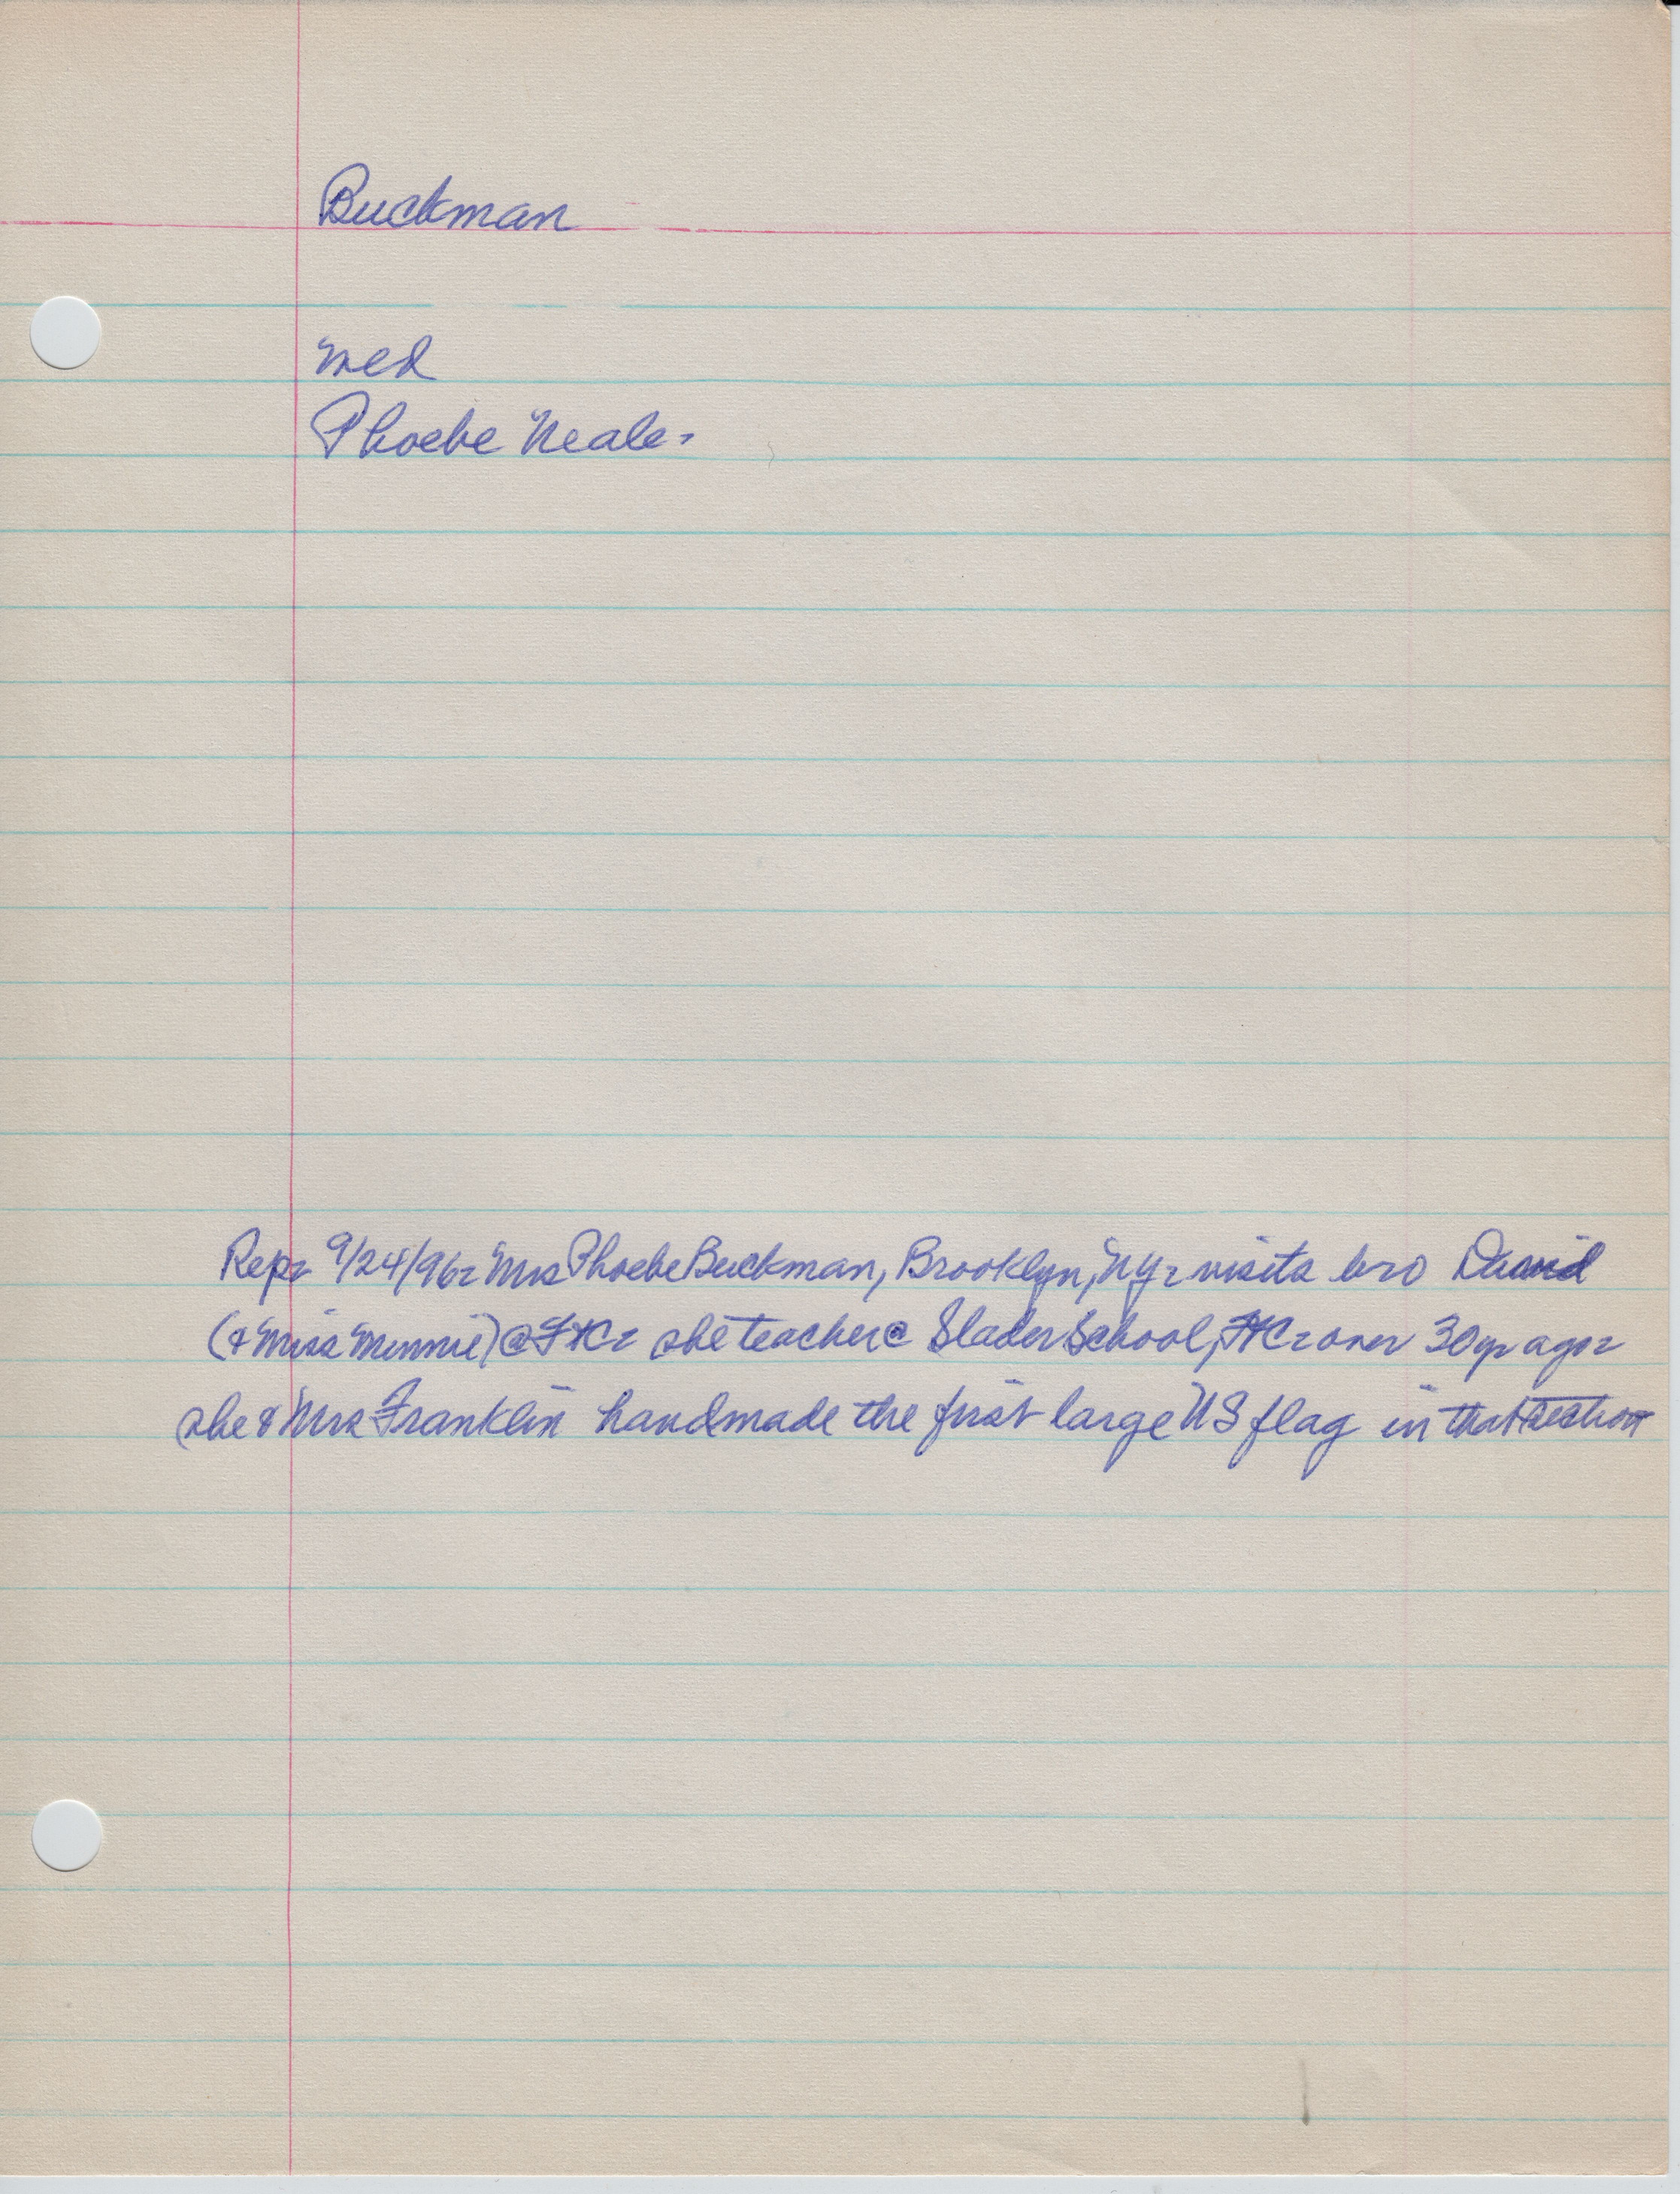 Buckman
med
Phoebe Neale-
Rep- 9/24/96- Mrs Phoebe Buckman, Brooklyn, NY- visits bro David
(& Miss Minnie) @ FKC- she teacher @ Slader School, FKC- over 30 yr ago-
she & Mrs Franklin handmade the first large US flag in that section